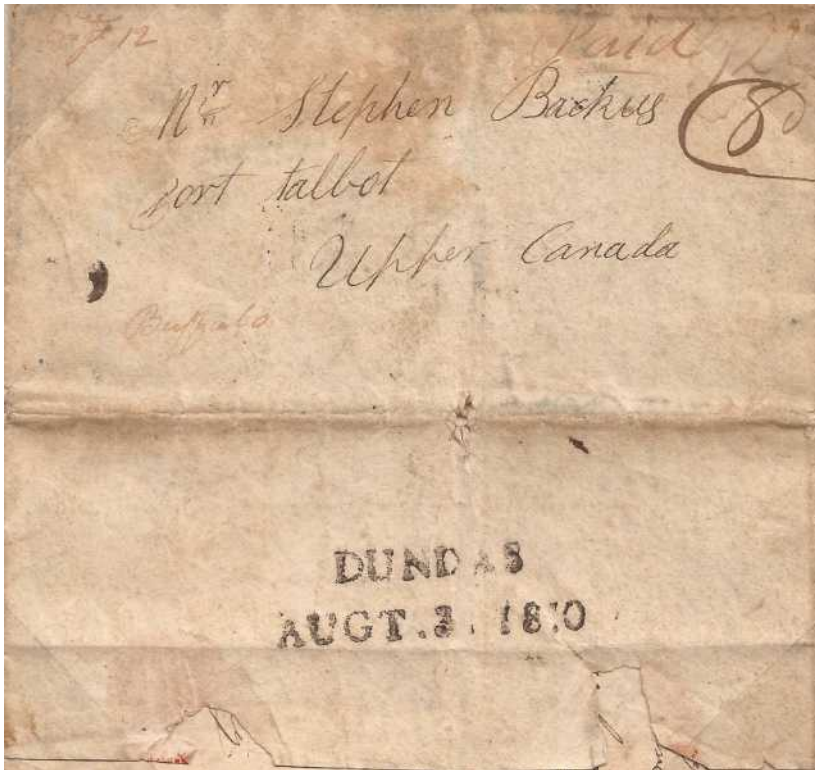 12 Paid 12
Mr Stephen Backus 8d
Port talbot
Upper Canada
Buffalo
DUNDAS
AUGT. 3. 1810